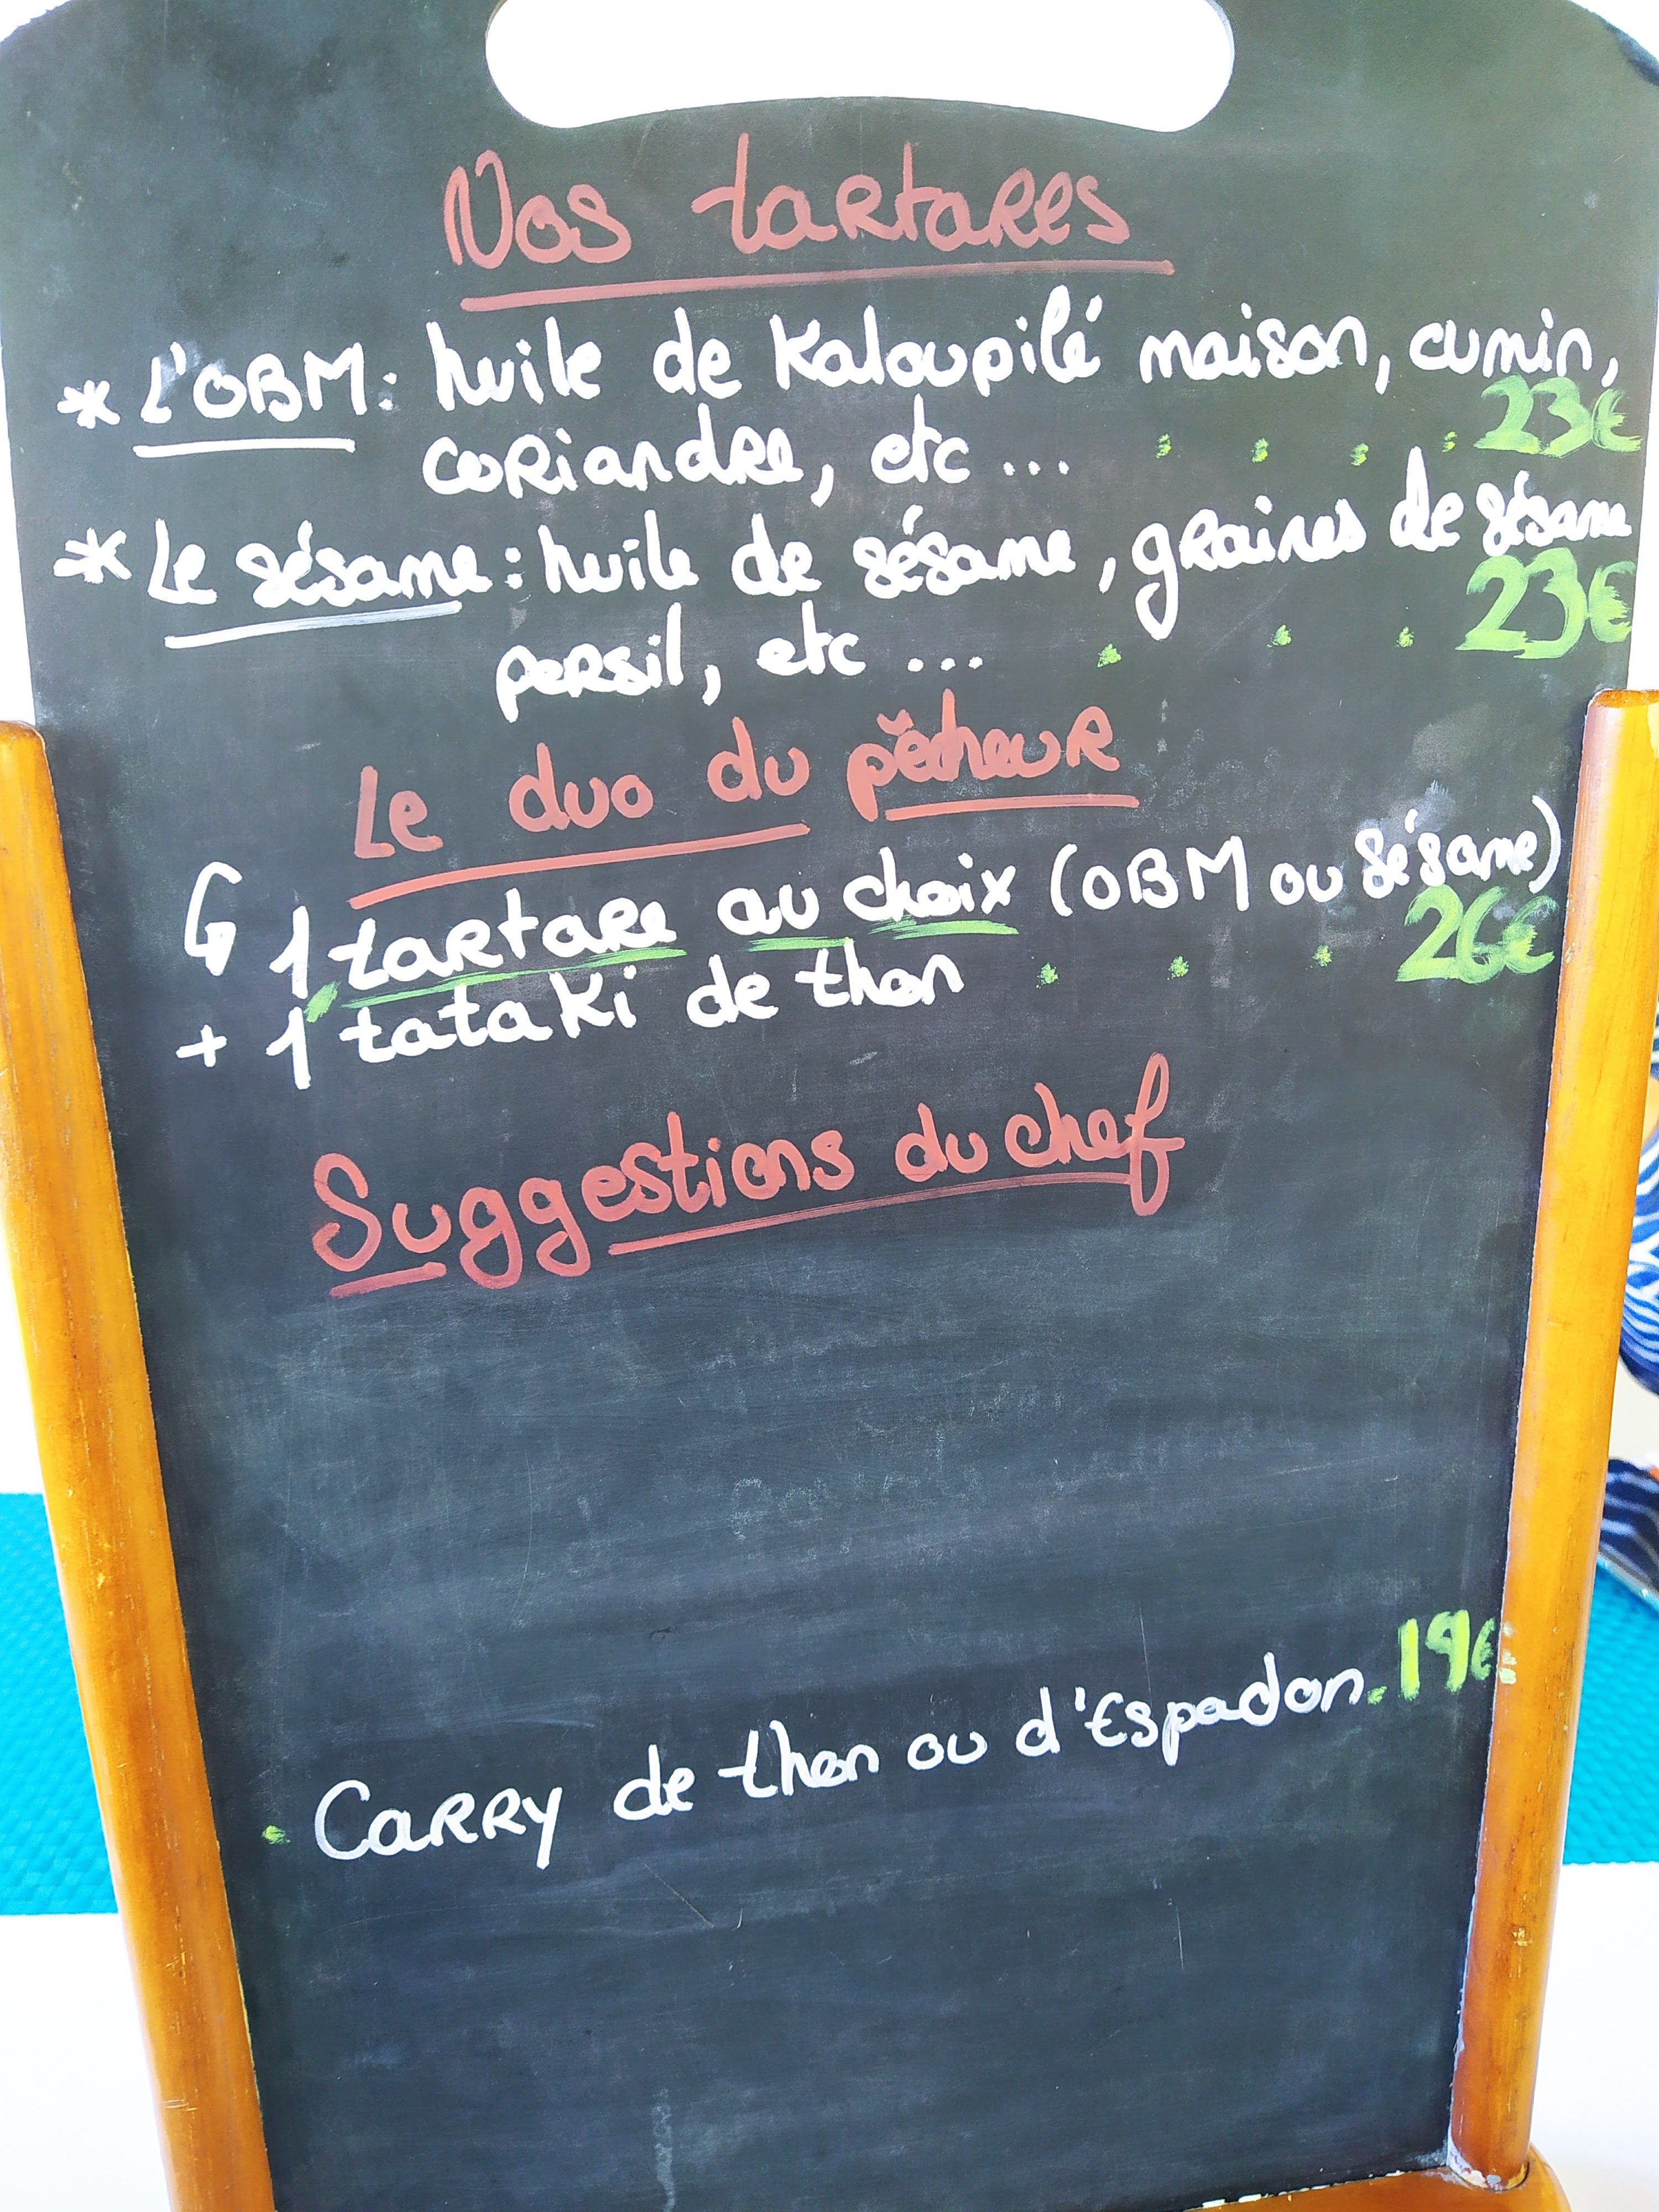 Nos tartares
* L'OBM : huile de Kaloupilé maison, cumin,
coriandre, etc ... . . . . 23€
* Le sésame : huile de sésame, graines de sésame
persil, etc ... . . . 23€
Le duo du pêcheur
↳ 1 tartare au choix (OBM ou sésame)
+ 1 tataki de thon . . . 26€
Suggestions du chef
. Carry de thon ou d'Espadon . 19€